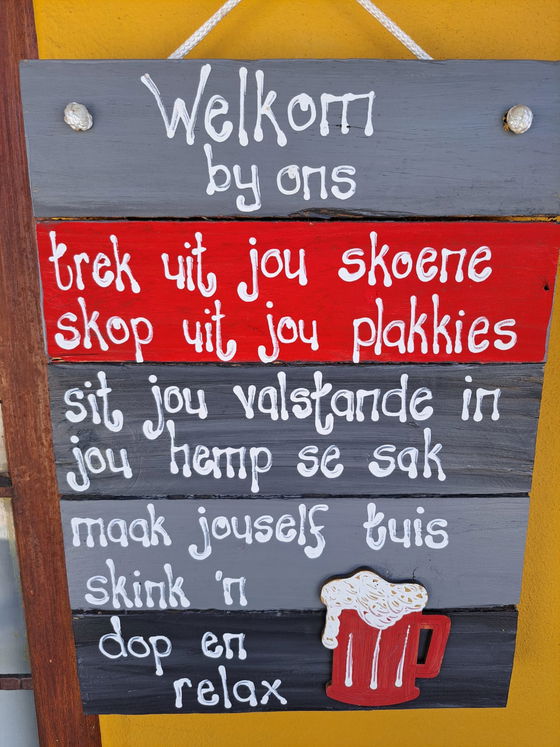 Welkom
by ons
trek uit jou skoene
skop uit jou plakkies
sit jou valstande in
jou hemp se sak
maak jouself tuis
skink 'n
dop en
relax